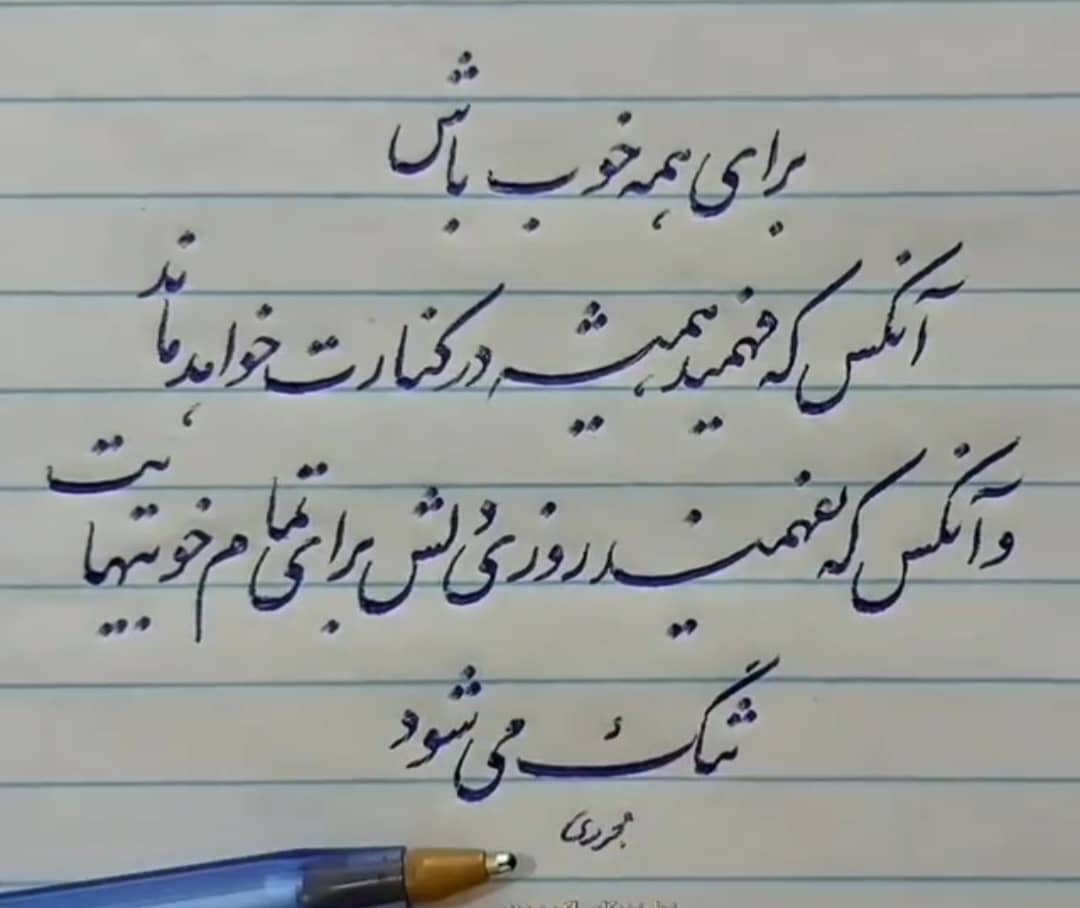 برای همه خوب باش
آنکس که فهمید همیشه در کنارت خواهد ماند
و آنکس که نفهمید روزی دلش برای تمام خوبیهایت
تنگ می شود